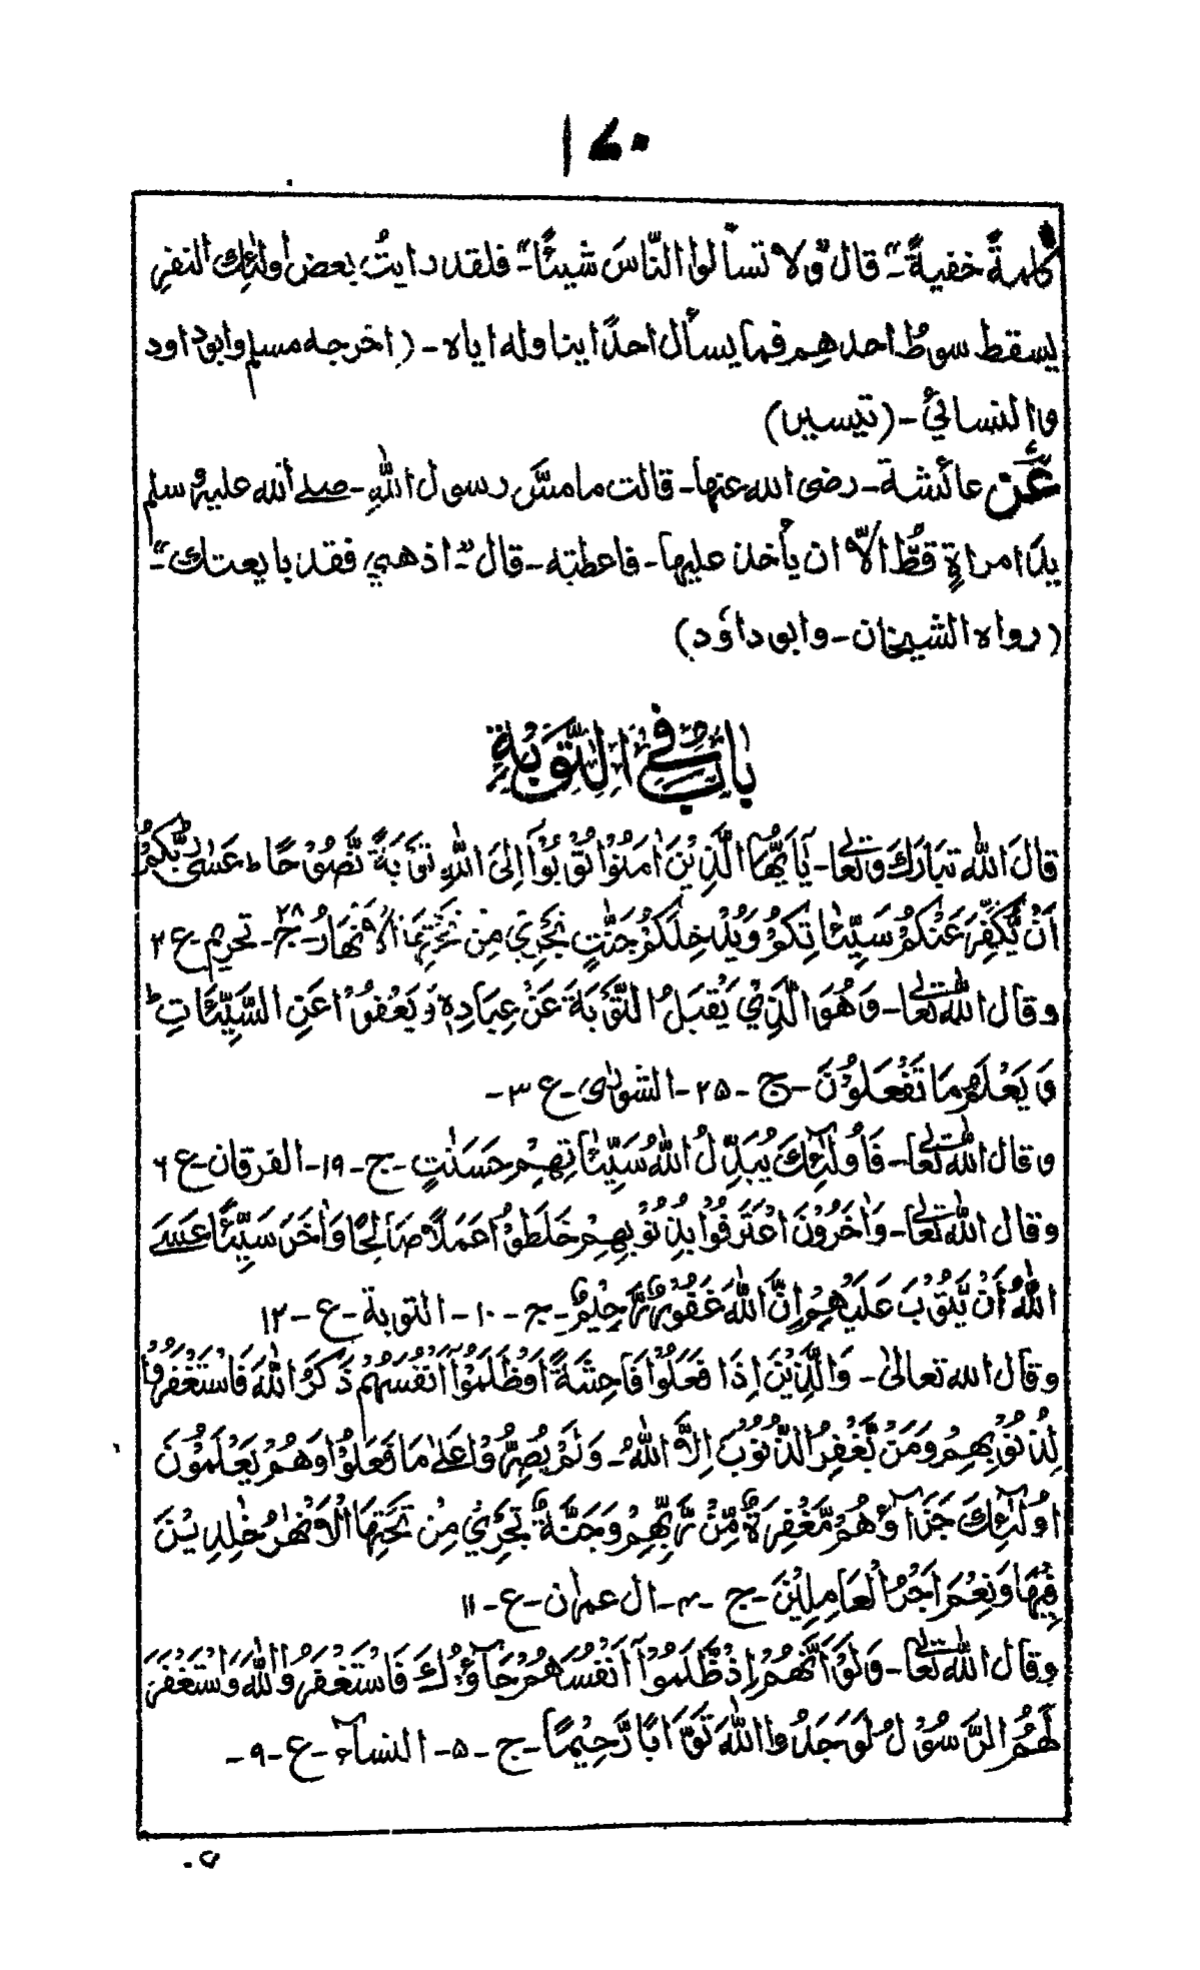 ۱۷۰
كلمةً خفيةً"۔ قال" ولا تسألوا النّاسَ شيئًا"۔ فلقد رايتُ بعض اولٰئِك النفرِ
يسقط سوطُ احدهم فما يسأل احدًا ينا وله اياه۔ (اخرجه مسلم وابوداود
والنسائيُّ۔ (تيسير)
عَن عائشة۔ رضی الله عنها۔ قالت ما مسَّ رسول اللهِ۔ صلے الله عليه وسلم
يدَ امراةٍ قطُّ الاّ ان يأخذ عليها۔ فاعطته۔ قال"۔ اذهبي فقد بايعتك"۔
(رواه الشيخان۔ وابوداؤد)
بابٌ فِي التَّوْبَةِ
قالَ اللهُ تبَارَكَ وتعالٰى۔ يٰاَيُّهَا الَّذِيْنَ اٰمَنُوْا تُوْبُوْٓا اِلَى اللّٰهِ تَوْبَةً نَّصُوْحًا ط عَسٰى رَبُّكُمْ
اَنْ يُّكَفِّرَ عَنْكُمْ سَيِّئَاتِكُمْ وَيُدْخِلَكُمْ جَنّٰتٍ تَجْرِيْ مِنْ تَحْتِهَا الْاَنْهَارُ۔ ج۲۸۔ تحريم۔ ع ۲
وقال الله تعالٰى۔ وَهُوَ الَّذِيْ يَقْبَلُ التَّوْبَةَ عَنْ عِبَادِهٖ وَيَعْفُوْا عَنِ السَّيِّئَاتِ ط
وَيَعْلَمُ مَا تَفْعَلُوْنَ۔ ج ۔ ۲۵۔ الشورٰی۔ ع ۳۔
وقال الله تعالٰى۔ فَاُولٰٓئِكَ يُبَدِّلُ اللّٰهُ سَيِّئَاتِهِمْ حَسَنٰتٍ۔ ج۔ ۱۹۔ الفرقان۔ ع ۶
وقال الله تعالٰى۔ وَاٰخَرُوْنَ اعْتَرَفُوْا بِذُنُوْبِهِمْ خَلَطُوْا عَمَلًا صَالِحًا وَّاٰخَرَ سَيِّئًا عَسَے
اللّٰهُ اَنْ يَّتُوْبَ عَلَيْهِمْ اِنَّ اللّٰهَ غَفُوْرٌ رَّحِيْمٌ۔ ج۔ ۱۰۔ التوبة۔ ع۔ ۱۲
وقال الله تعالىٰ۔ وَالَّذِيْنَ اِذَا فَعَلُوْا فَاحِشَةً اَوْ ظَلَمُوْٓا اَنْفُسَهُمْ ذَكَرُوا اللّٰهَ فَاسْتَغْفَرُوْا
لِذُنُوْبِهِمْ وَمَنْ يَّغْفِرُ الذُّنُوْبَ اِلَّا اللّٰهُ۔ وَلَمْ يُصِرُّوْا عَلٰى مَا فَعَلُوْا وَهُمْ يَعْلَمُوْنَ
اُولٰٓئِكَ جَزَآؤُهُمْ مَّغْفِرَةٌ مِّنْ رَّبِّهِمْ وَجَنّٰةٌ تَجْرِيْ مِنْ تَحْتِهَا الْاَنْهٰرُ خٰلِدِيْنَ
فِيْهَا وَنِعْمَ اَجْرُ الْعَامِلِيْنَ۔ ج ۔ ۴۔ ال عمران۔ ع۔ ۱۱
وقال الله تعالٰى۔ وَلَوْ اَنَّهُمْ اِذْ ظَّلَمُوْٓا اَنْفُسَهُمْ جَآؤُكَ فَاسْتَغْفَرُوا اللّٰهَ وَاسْتَغْفَرَ
لَهُمُ الرَّسُوْلُ لَوَجَدُوا اللّٰهَ تَوَّابًا رَّحِيْمًا۔ ج ۔ ۵۔ النساۤء۔ ع۔ ۹۔